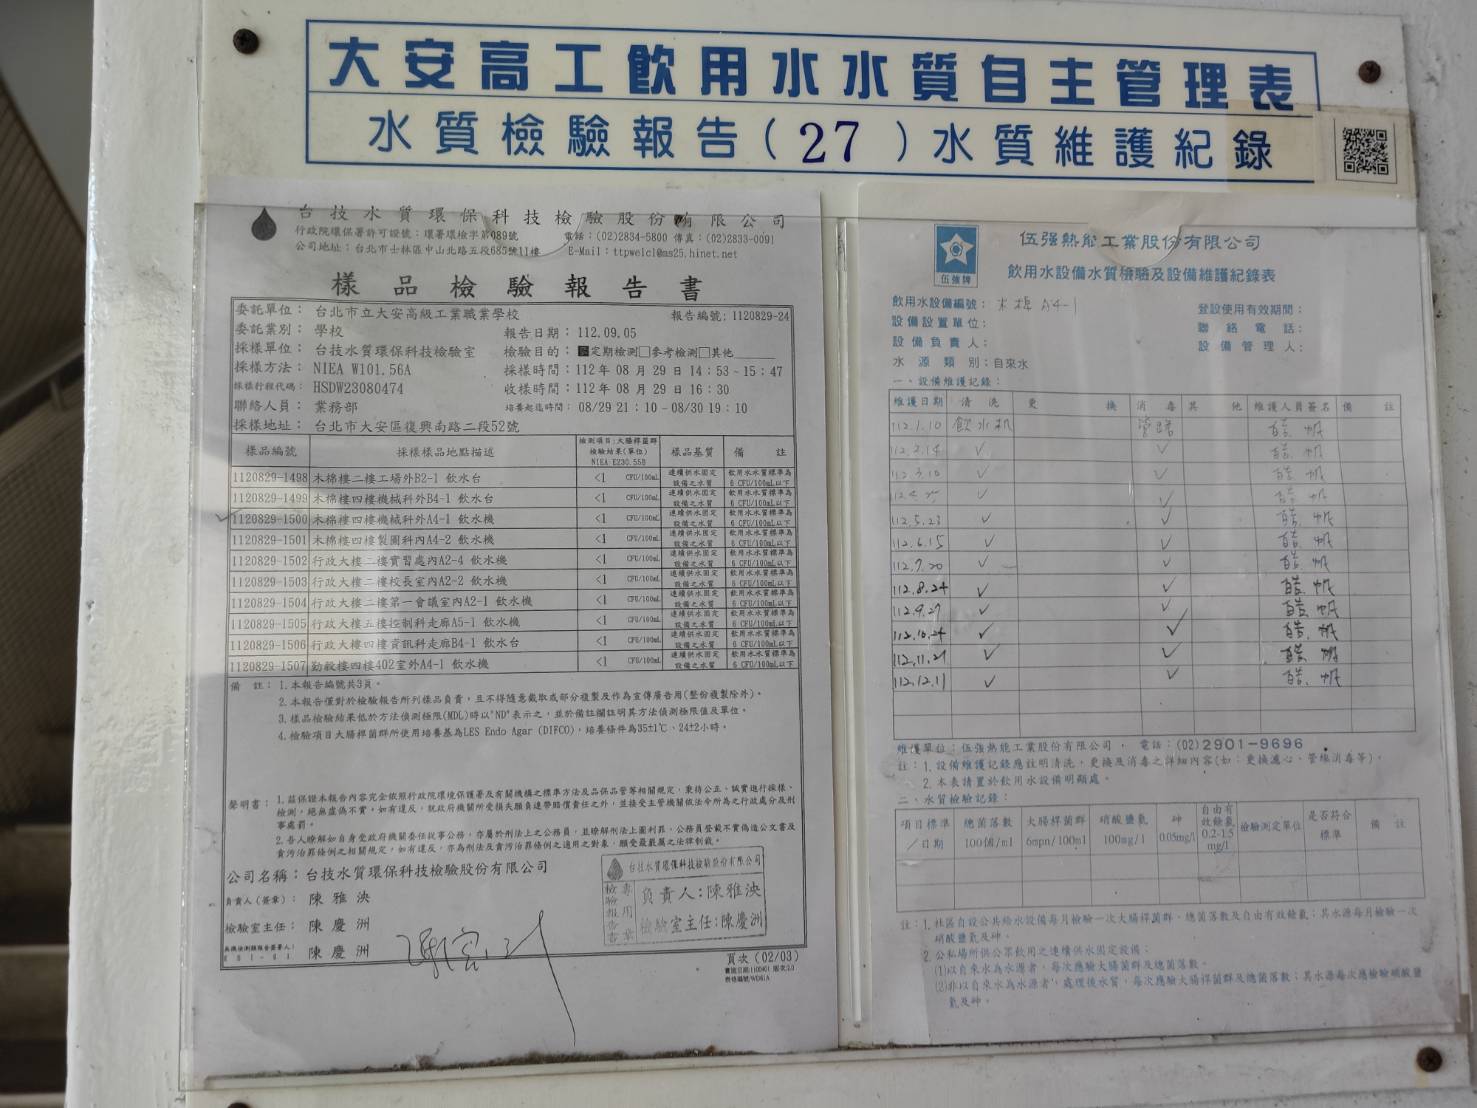 大安高工飲用水水質自主管理表
水質檢驗報告(27)水質維護紀錄
台技水質環保科技檢驗股份有限公司
行政院環保署許可證號：環署環檢字第089號 電話：(02)2834-5800 傳真：(02)2833-0091
公司地址：台北市士林區中山北路五段685號11樓 E-Mail：ttpwelcl@ms25.hinet.net
樣品檢驗報告書
委託單位：台北市立大安高級工業職業學校 報告編號：1120829-24
委託業別：學校 報告日期：112.09.05
採樣單位：台技水質環保科技檢驗室 檢驗目的：■定期檢測□參考檢測□其他
採樣方法：NIEA W101.56A 採樣時間：112年08月29日14：53~15：47
採樣行程代碼：HSDW23080474 收樣時間：112年08月29日16：30
聯絡人員：業務部 培養起迄時間：08/29 21：10-08/30 19：10
採樣地址：台北市大安區復興南路二段52號
樣品編號 採樣樣品地點描述 檢測項目:大腸桿菌群 檢驗結果(單位) NIEA E230.55B 樣品基質 備註
1120829-1498 木棉樓二樓工場外B2-1 飲水台 <1 CFU/100mL 連續供水固定設備之水質 飲用水水質標準為6 CFU/100mL以下
1120829-1499 木棉樓四樓機械科外B4-1 飲水台 <1 CFU/100mL 連續供水固定設備之水質 飲用水水質標準為6 CFU/100mL以下
1120829-1500 木棉樓四樓機械科外A4-1 飲水機 <1 CFU/100mL 連續供水固定設備之水質 飲用水水質標準為6 CFU/100mL以下
1120829-1501 木棉樓四樓製圖科內A4-2 飲水機 <1 CFU/100mL 連續供水固定設備之水質 飲用水水質標準為6 CFU/100mL以下
1120829-1502 行政大樓二樓實習處內A2-4 飲水機 <1 CFU/100mL 連續供水固定設備之水質 飲用水水質標準為6 CFU/100mL以下
1120829-1503 行政大樓二樓校長室內A2-2 飲水機 <1 CFU/100mL 連續供水固定設備之水質 飲用水水質標準為6 CFU/100mL以下
1120829-1504 行政大樓二樓第一會議室內A2-1 飲水機 <1 CFU/100mL 連續供水固定設備之水質 飲用水水質標準為6 CFU/100mL以下
1120829-1505 行政大樓五樓控制科走廊A5-1 飲水機 <1 CFU/100mL 連續供水固定設備之水質 飲用水水質標準為6 CFU/100mL以下
1120829-1506 行政大樓四樓資訊科走廊B4-1 飲水台 <1 CFU/100mL 連續供水固定設備之水質 飲用水水質標準為6 CFU/100mL以下
1120829-1507 勤毅樓四樓402室外A4-1 飲水機 <1 CFU/100mL 連續供水固定設備之水質 飲用水水質標準為6 CFU/100mL以下
備 註：1.本報告編號共3頁。
2.本報告僅對於檢驗報告所列樣品負責，且不得隨意截取或部分複製及作為宣傳廣告用(整份複製除外)。
3.樣品檢驗結果低於方法偵測極限(MDL)時以"ND"表示之，並於備註欄註明其方法偵測極限值及單位。
4.檢驗項目大腸桿菌群所使用培養基為LES Endo Agar (DIFCO)，培養條件為35±1℃、24±2小時。
聲明書：1.茲保證本報告內容完全依照行政院環境保護署及有關機構之標準方法及品保品管等相關規定，秉持公正、誠實進行採樣、
檢測，絕無虛偽不實。如有違反，就政府機關所受損失願負連帶賠償責任之外，並接受主管機關依法令所為之行政處分及刑
事處罰。
2.吾人瞭解如自身受政府機關委任從事公務，亦屬於刑法上之公務員，並瞭解刑法上圖利罪、公務員登載不實偽造公文書及
貪污治罪條例之相關規定，如有違反，亦為刑法及貪污治罪條例之適用之對象，願受最嚴厲之法律制裁。
公司名稱：台技水質環保科技檢驗股份有限公司
負責人（簽章）：陳雅泱
檢驗室主任：陳慶洲
陳慶洲
台技水質環保科技檢驗股份有限公司
檢驗報告書 專用章
負責人:陳雅泱
檢驗室主任:陳慶洲
頁次(02/03)
伍強牌
伍强熱能工業股份有限公司
飲用水設備水質檢驗及設備維護紀錄表
飲用水設備編號：木棉A4-1 登設使用有效期間：
設備設置單位： 聯絡電話：
設備負責人： 設備管理人：
水源類別：自來水
一、設備維護記錄：
維護日期 清洗 更換 消毒 其他 維護人員簽名 備註
112.1.10 飲水机 管路
112.2.14 ✓ ✓
112.3.10 ✓ ✓
✓ ✓
112.5.23 ✓ ✓
112.6.15 ✓ ✓
112.7.20 ✓
112.8.24 ✓ ✓
112.9.27 ✓ ✓
112.10.24 ✓ ✓
112.11.21 ✓ ✓
112.12.11 ✓ ✓
維護單位：伍强熱能工業股份有限公司， 電話：(02)2901-9696
註：1.設備維護記錄應註明清洗，更換及消毒之詳細內容(如：更換濾心、管線消毒等)。
2.本表請置於飲用水設備明顯處。
二、水質檢驗記錄：
項目標準／日期 總菌落數 100個/ml 大腸桿菌群 6mpn/100ml 硝酸鹽氮 100mg/l 砷 0.05mg/l 自由有效餘氯 0.2-1.5 mg/l 檢驗測定單位 是否符合標準 備註
註：1.社區自設公共給水設備每月檢驗一次大腸桿菌群、總菌落數及自由有餘氯；其水源每月檢驗一次
硝酸鹽氮及砷。
2.公私場所供公眾飲用之連續供水固定設備：
(1)以自來水為水源者，每次應驗大腸菌群及總菌落數。
(2)非以自來水為水源者，處理後水質，每次應驗大腸桿菌群及總菌落數；其水源每次應檢驗硝酸鹽
氮及砷。